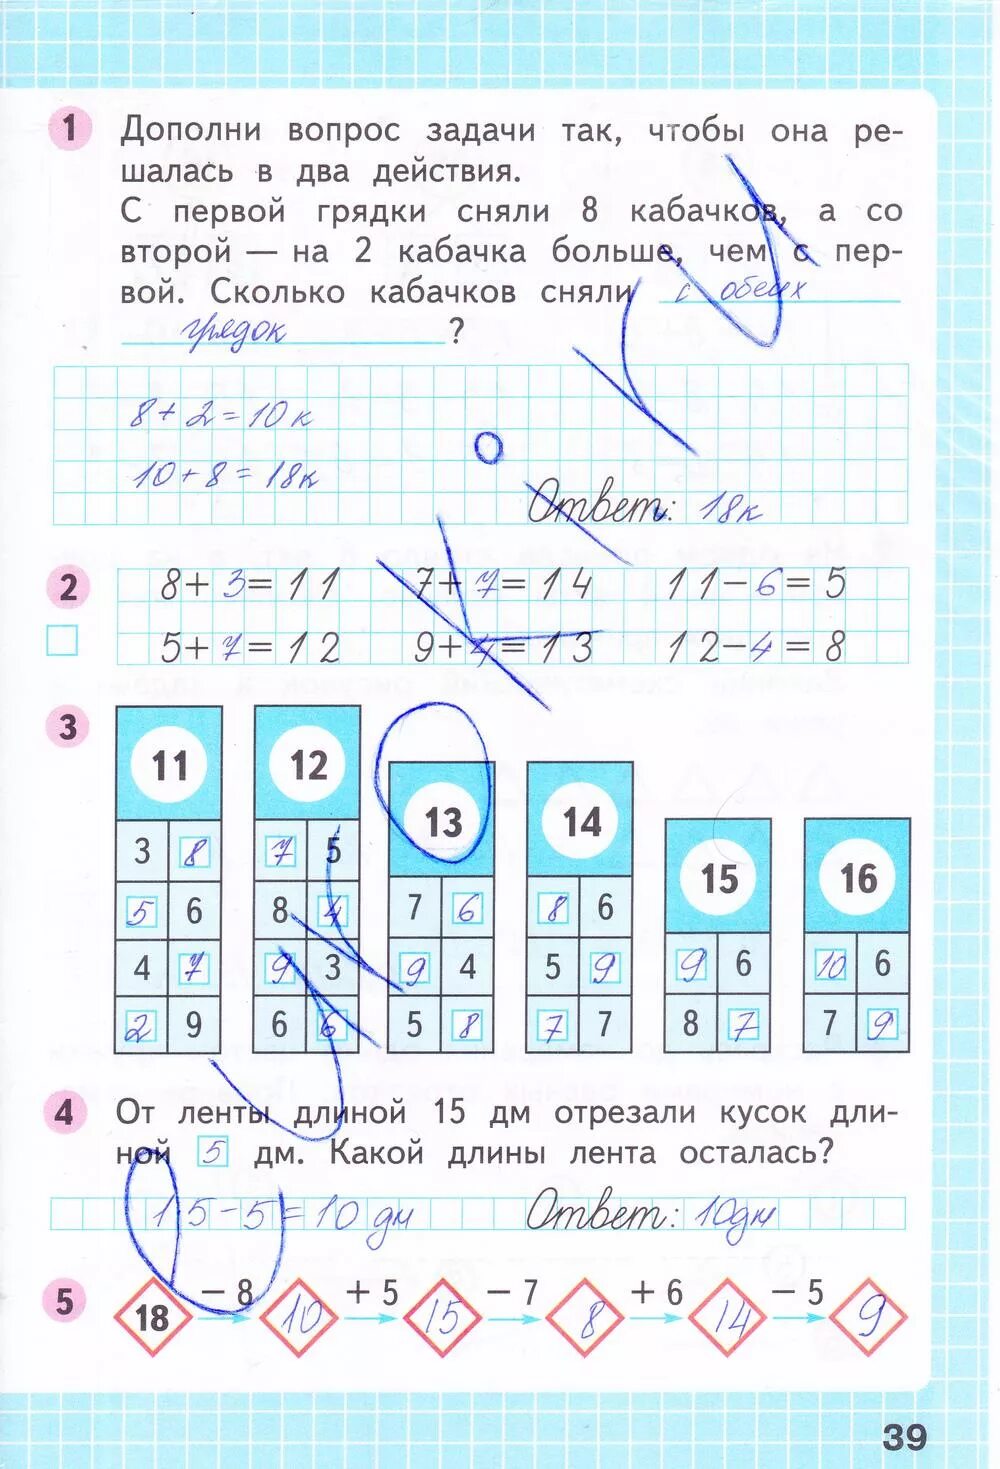 1 Дополни вопрос задачи так, чтобы она ре-
шалась в два действия.
С первой грядки сняли 8 кабачков, а со
второй — на 2 кабачка больше, чем с пер-
вой. Сколько кабачков сняли с обеих
грядок ?
8 + 2 = 10 к
10 + 8 = 18к
Ответ: 18к
2 8 + 3 = 11 7 + 7 = 14 11 − 6 = 5
5 + 7 = 12 9 + 4 = 13 12 − 4 = 8
3
11 12
13 14
15 16
3 8 7 5
5 6 8 4 7 6 8 6
4 7 9 3 9 4 5 9 9 6 10 6
2 9 6 6 5 8 7 7 8 7 7 9
4 От ленты длиной 15 дм отрезали кусок дли-
ной 5 дм. Какой длины лента осталась?
15 − 5 = 10 дм Ответ: 10дм
5 18 − 8 10 + 5 15 − 7 8 + 6 14 − 5 9
39